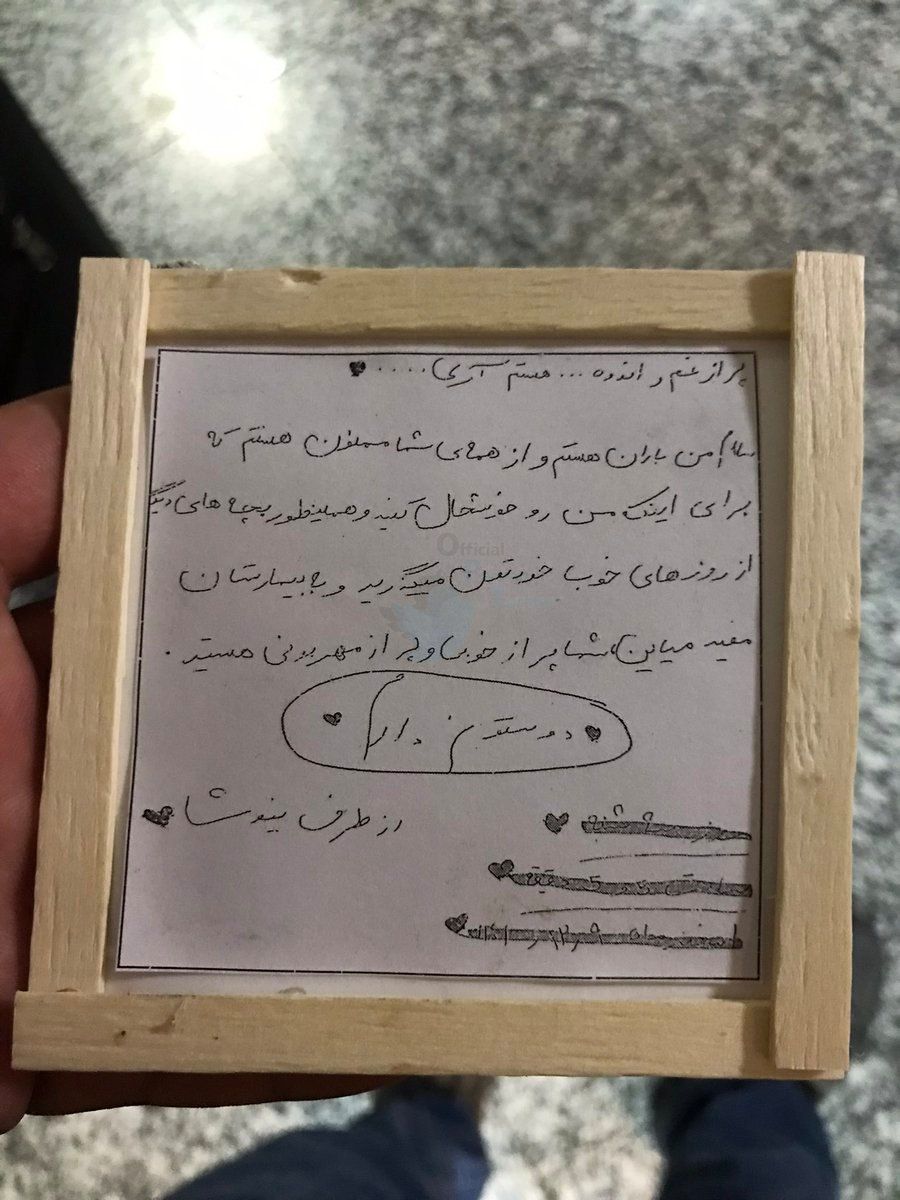 پر از غم و اندوه ... هستم آری ....
سلام من باران هستم و از همه‌ی شما ممنون هستم که
برای اینکه من رو خوشحال کنید و همینطور بچه های دیگ
از روزهای خوب خودتون میگذرید و به بیمارستان
مفید میاین، شما پر از خوبی و پر از مهربونی هستید.
دوستون دارم
از طرف بینوشا
Official